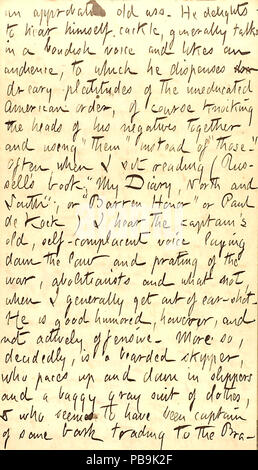 an approbate old ass. He delights
to hear himself cackle, generally talks
in a loudish voice and likes an
audience, to which he dispenses
dreary platitudes of the uneducated
American order, of course knocking
the heads of his negatives together
and using "them" instead of "those"
Often, when I sit reading (Rus-
sell's book, "My Diary, North and
South", or "Barren Honor" or Paul
de Kock) I hear the captain's
old, self-complacent voice laying
down the law and prating of the
war, abolitionists and what not,
when I generally get out of ear-shot.
He is good humored, however, and
not actively offensive. More so,
decidedly, is a bearded skipper,
who paces up and down in slippers
and a baggy gray suit of clothes,
& who seems to have been captain
of some bark trading to the Bra-
alamy
alamy
PB9K2F